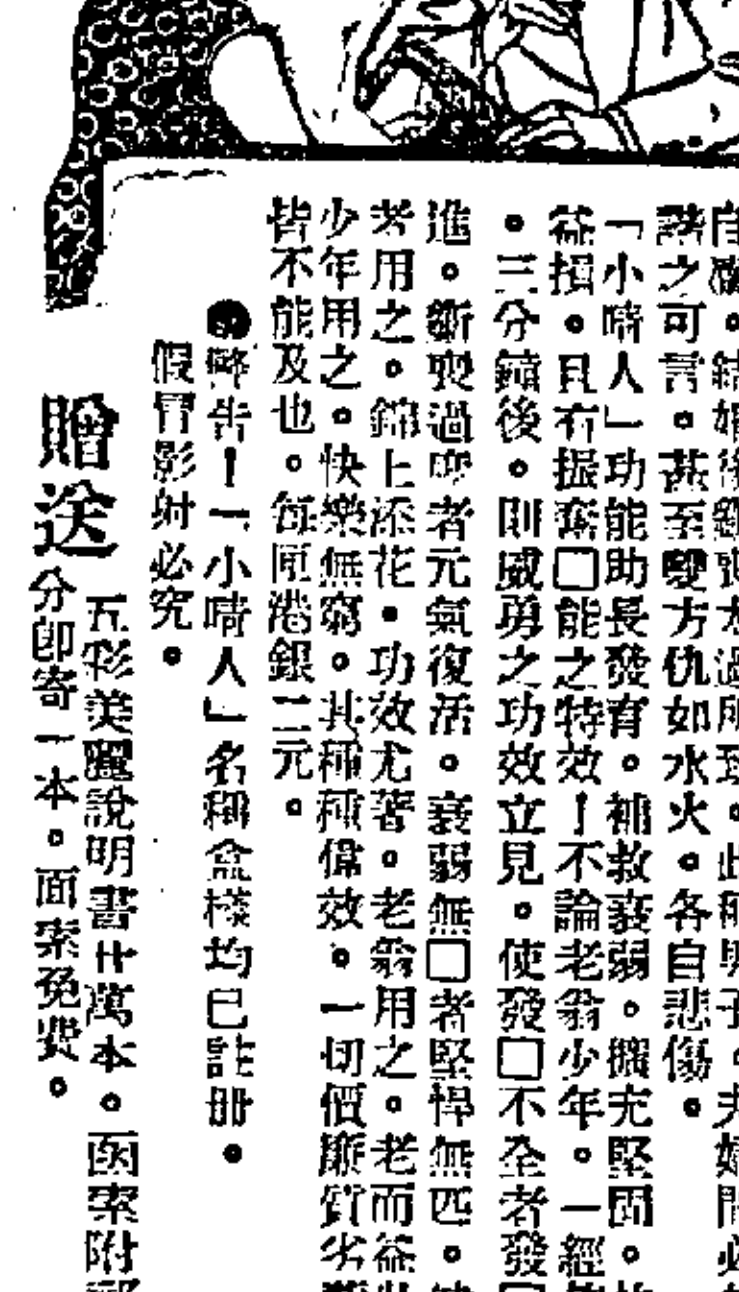 自　。結婚後　喪太過所致。此種男子。夫婦間必
諧之可言。甚至雙方仇如水火。各自悲傷。
「小晴人」功能助長發育。補救衰弱。擴充堅固。
益損。且有振奮□能之特效！不論老翁少年。一經
。三分鐘後。則威勇之功效立見。使發□不全者發□
進。斵喪過度者元氣復活。衰弱無□者堅悍無匹。
者用之。錦上添花。功效尤著。老翁用之。老而益壯
少年用之。快樂無窮。其種種偉效。一切價廉質劣
皆不能及也。每匣港銀二元。
●警告！「小晴人」名稱盒樣均已註册。
假冒影射必究。
贈送
五彩美麗說明書廿萬本。函索附郵
分卽寄一本。面索免費。